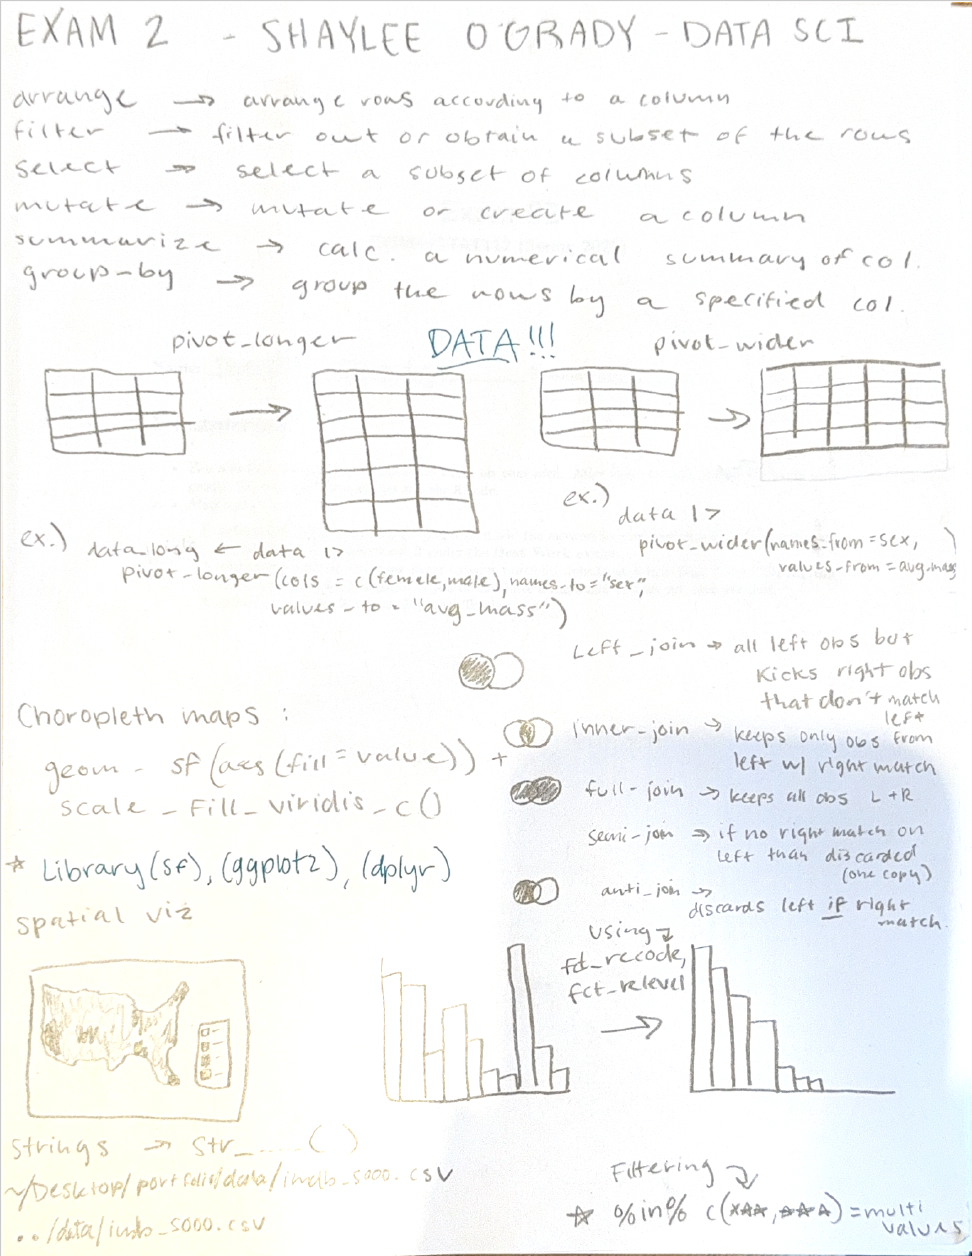 EXAM 2 - SHAYLEE O'GRADY - DATA SCI
arrange → arrange rows according to a column
filter → filter out or obtain a subset of the rows
select → select a subset of columns
mutate → mutate or create a column
summarize → calc. a numerical summary of col.
group-by → group the rows by a specified col.
pivot_longer DATA!!! pivot-wider
ex.) data_long ← data |>
pivot-longer(cols = c(female, male), names-to = "sex",
values-to = "avg_mass")
ex.)
data |>
pivot-wider(names-from = sex,
values-from = avg-mass)
Left_join → all left obs but
kicks right obs
that don't match
left
inner-join → keeps only obs from
left w/ right match
full-join → keeps all obs L+R
semi-join → if no right match on
left than discarded
(one copy)
anti_join →
discards left if right
match.
Choropleth maps:
geom_sf(aes(fill=value)) +
scale_fill_viridis_c()
☆ Library(sf), (ggplot2), (dplyr)
spatial viz
using
fct_recode,
fct-relevel
→
strings → str_.....()
~/Desktop/portfolio/data/imdb_5000.csv
../data/imdb_5000.csv
Filtering
☆ %in% c( , ) = multi
values